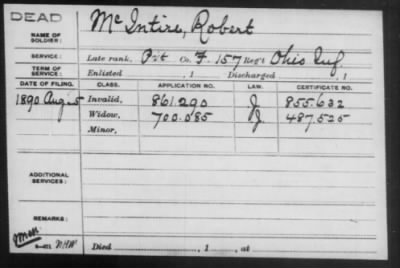 DEAD
NAME OF SOLDIER: McIntire, Robert
SERVICE: Late rank, Pvt Co. F. 157 Reg't Ohio Inf.
TERM OF SERVICE: Enlisted , 1 Discharged , 1
DATE OF FILING. CLASS. APPLICATION NO. LAW. CERTIFICATE NO.
1890 Aug 5 Invalid, 861.290 J 855.632
Widow, 700.085 J 487.525
Minor,
ADDITIONAL SERVICES:
REMARKS:
Died , 1 , at